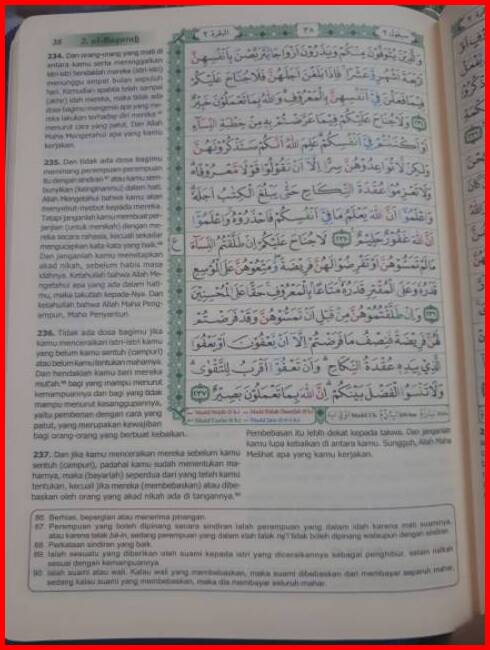 38
2. al-Baqarah
البقرة ٢
٣٨
سيقول ٢
234. Dan orang-orang yang mati di
antara kamu serta meninggalkan
istri-istri hendaklah mereka (istri-istri)
menunggu empat bulan sepuluh
hari. Kemudian apabila telah sampai
(akhir) idah mereka, maka tidak ada
dosa bagimu mengenai apa yang me-
reka lakukan terhadap diri mereka⁸⁶
menurut cara yang patut. Dan Allah
Maha Mengetahui apa yang kamu
kerjakan.
235. Dan tidak ada dosa bagimu
meminang perempuan-perempuan
itu dengan sindiran⁸⁷ atau kamu sem-
bunyikan (keinginanmu) dalam hati.
Allah mengetahui bahwa kamu akan
menyebut-nyebut kepada mereka.
Tetapi janganlah kamu membuat per-
janjian (untuk menikah) dengan me-
reka secara rahasia, kecuali sekadar
mengucapkan kata-kata yang baik.⁸⁸
Dan janganlah kamu menetapkan
akad nikah, sebelum habis masa
idahnya. Ketahuilah bahwa Allah Me-
ngetahui apa yang ada dalam hati-
mu, maka takutlah kepada-Nya. Dan
ketahuilah bahwa Allah Maha Peng-
ampun, Maha Penyantun.
236. Tidak ada dosa bagimu jika
kamu menceraikan istri-istri kamu
yang belum kamu sentuh (campuri)
atau belum kamu tentukan maharnya.
Dan hendaklah kamu beri mereka
mut'ah,⁸⁹ bagi yang mampu menurut
kemampuannya dan bagi yang tidak
mampu menurut kesanggupannya,
yaitu pemberian dengan cara yang
patut, yang merupakan kewajiban
bagi orang-orang yang berbuat kebaikan.
وَالَّذِيْنَ يُتَوَفَّوْنَ مِنْكُمْ وَيَذَرُوْنَ اَزْوَاجًا يَّتَرَبَّصْنَ بِاَنْفُسِهِنَّ
اَرْبَعَةَ اَشْهُرٍ وَّعَشْرًا فَاِذَا بَلَغْنَ اَجَلَهُنَّ فَلَا جُنَاحَ عَلَيْكُمْ
فِيْمَا فَعَلْنَ فِيْٓ اَنْفُسِهِنَّ بِالْمَعْرُوْفِ وَاللّٰهُ بِمَا تَعْمَلُوْنَ خَبِيْرٌ
٢٣٤ وَلَا جُنَاحَ عَلَيْكُمْ فِيْمَا عَرَّضْتُمْ بِهٖ مِنْ خِطْبَةِ النِّسَاۤءِ
اَوْ اَكْنَنْتُمْ فِيْٓ اَنْفُسِكُمْ عَلِمَ اللّٰهُ اَنَّكُمْ سَتَذْكُرُوْنَهُنَّ
وَلٰكِنْ لَّا تُوَاعِدُوْهُنَّ سِرًّا اِلَّآ اَنْ تَقُوْلُوْا قَوْلًا مَّعْرُوْفًا
وَلَا تَعْزِمُوْا عُقْدَةَ النِّكَاحِ حَتّٰى يَبْلُغَ الْكِتٰبُ اَجَلَهٗ
وَاعْلَمُوْٓا اَنَّ اللّٰهَ يَعْلَمُ مَا فِيْٓ اَنْفُسِكُمْ فَاحْذَرُوْهُ وَاعْلَمُوْٓا
اَنَّ اللّٰهَ غَفُوْرٌ حَلِيْمٌ ٢٣٥ لَا جُنَاحَ عَلَيْكُمْ اِنْ طَلَّقْتُمُ النِّسَاۤءَ
مَا لَمْ تَمَسُّوْهُنَّ اَوْ تَفْرِضُوْا لَهُنَّ فَرِيْضَةً وَّمَتِّعُوْهُنَّ عَلَى الْمُوْسِعِ
قَدَرُهٗ وَعَلَى الْمُقْتِرِ قَدَرُهٗ مَتَاعًا بِالْمَعْرُوْفِ حَقًّا عَلَى الْمُحْسِنِيْنَ
٢٣٦ وَاِنْ طَلَّقْتُمُوْهُنَّ مِنْ قَبْلِ اَنْ تَمَسُّوْهُنَّ وَقَدْ فَرَضْتُمْ
لَهُنَّ فَرِيْضَةً فَنِصْفُ مَا فَرَضْتُمْ اِلَّآ اَنْ يَّعْفُوْنَ اَوْ يَعْفُوَا
الَّذِيْ بِيَدِهٖ عُقْدَةُ النِّكَاحِ وَاَنْ تَعْفُوْٓا اَقْرَبُ لِلتَّقْوٰى
وَلَا تَنْسَوُا الْفَضْلَ بَيْنَكُمْ اِنَّ اللّٰهَ بِمَا تَعْمَلُوْنَ بَصِيْرٌ ٢٣٧
237. Dan jika kamu menceraikan mereka sebelum kamu
sentuh (campuri), padahal kamu sudah menentukan ma-
harnya, maka (bayarlah) seperdua dari yang telah kamu
tentukan, kecuali jika mereka (membebaskan) atau dibe-
baskan oleh orang yang akad nikah ada di tangannya.⁹⁰
Pembebasan itu lebih dekat kepada takwa. Dan janganlah
kamu lupa kebaikan di antara kamu. Sungguh, Allah Maha
Melihat apa yang kamu kerjakan.
86 Berhias, bepergian atau menerima pinangan.
87 Perempuan yang boleh dipinang secara sindiran ialah perempuan yang dalam idah karena mati suaminya,
atau karena talak ba'in, sedang perempuan yang dalam idah talak raj'i tidak boleh dipinang walaupun dengan sindiran.
88 Perkataan sindiran yang baik.
89 Ialah sesuatu yang diberikan oleh suami kepada istri yang diceraikannya sebagai penghibur, selain nafkah
sesuai dengan kemampuannya.
90 Ialah suami atau wali. Kalau wali yang membebaskan, maka suami dibebaskan dari membayar separuh mahar,
sedang kalau suami yang membebaskan, maka dia membayar seluruh mahar.